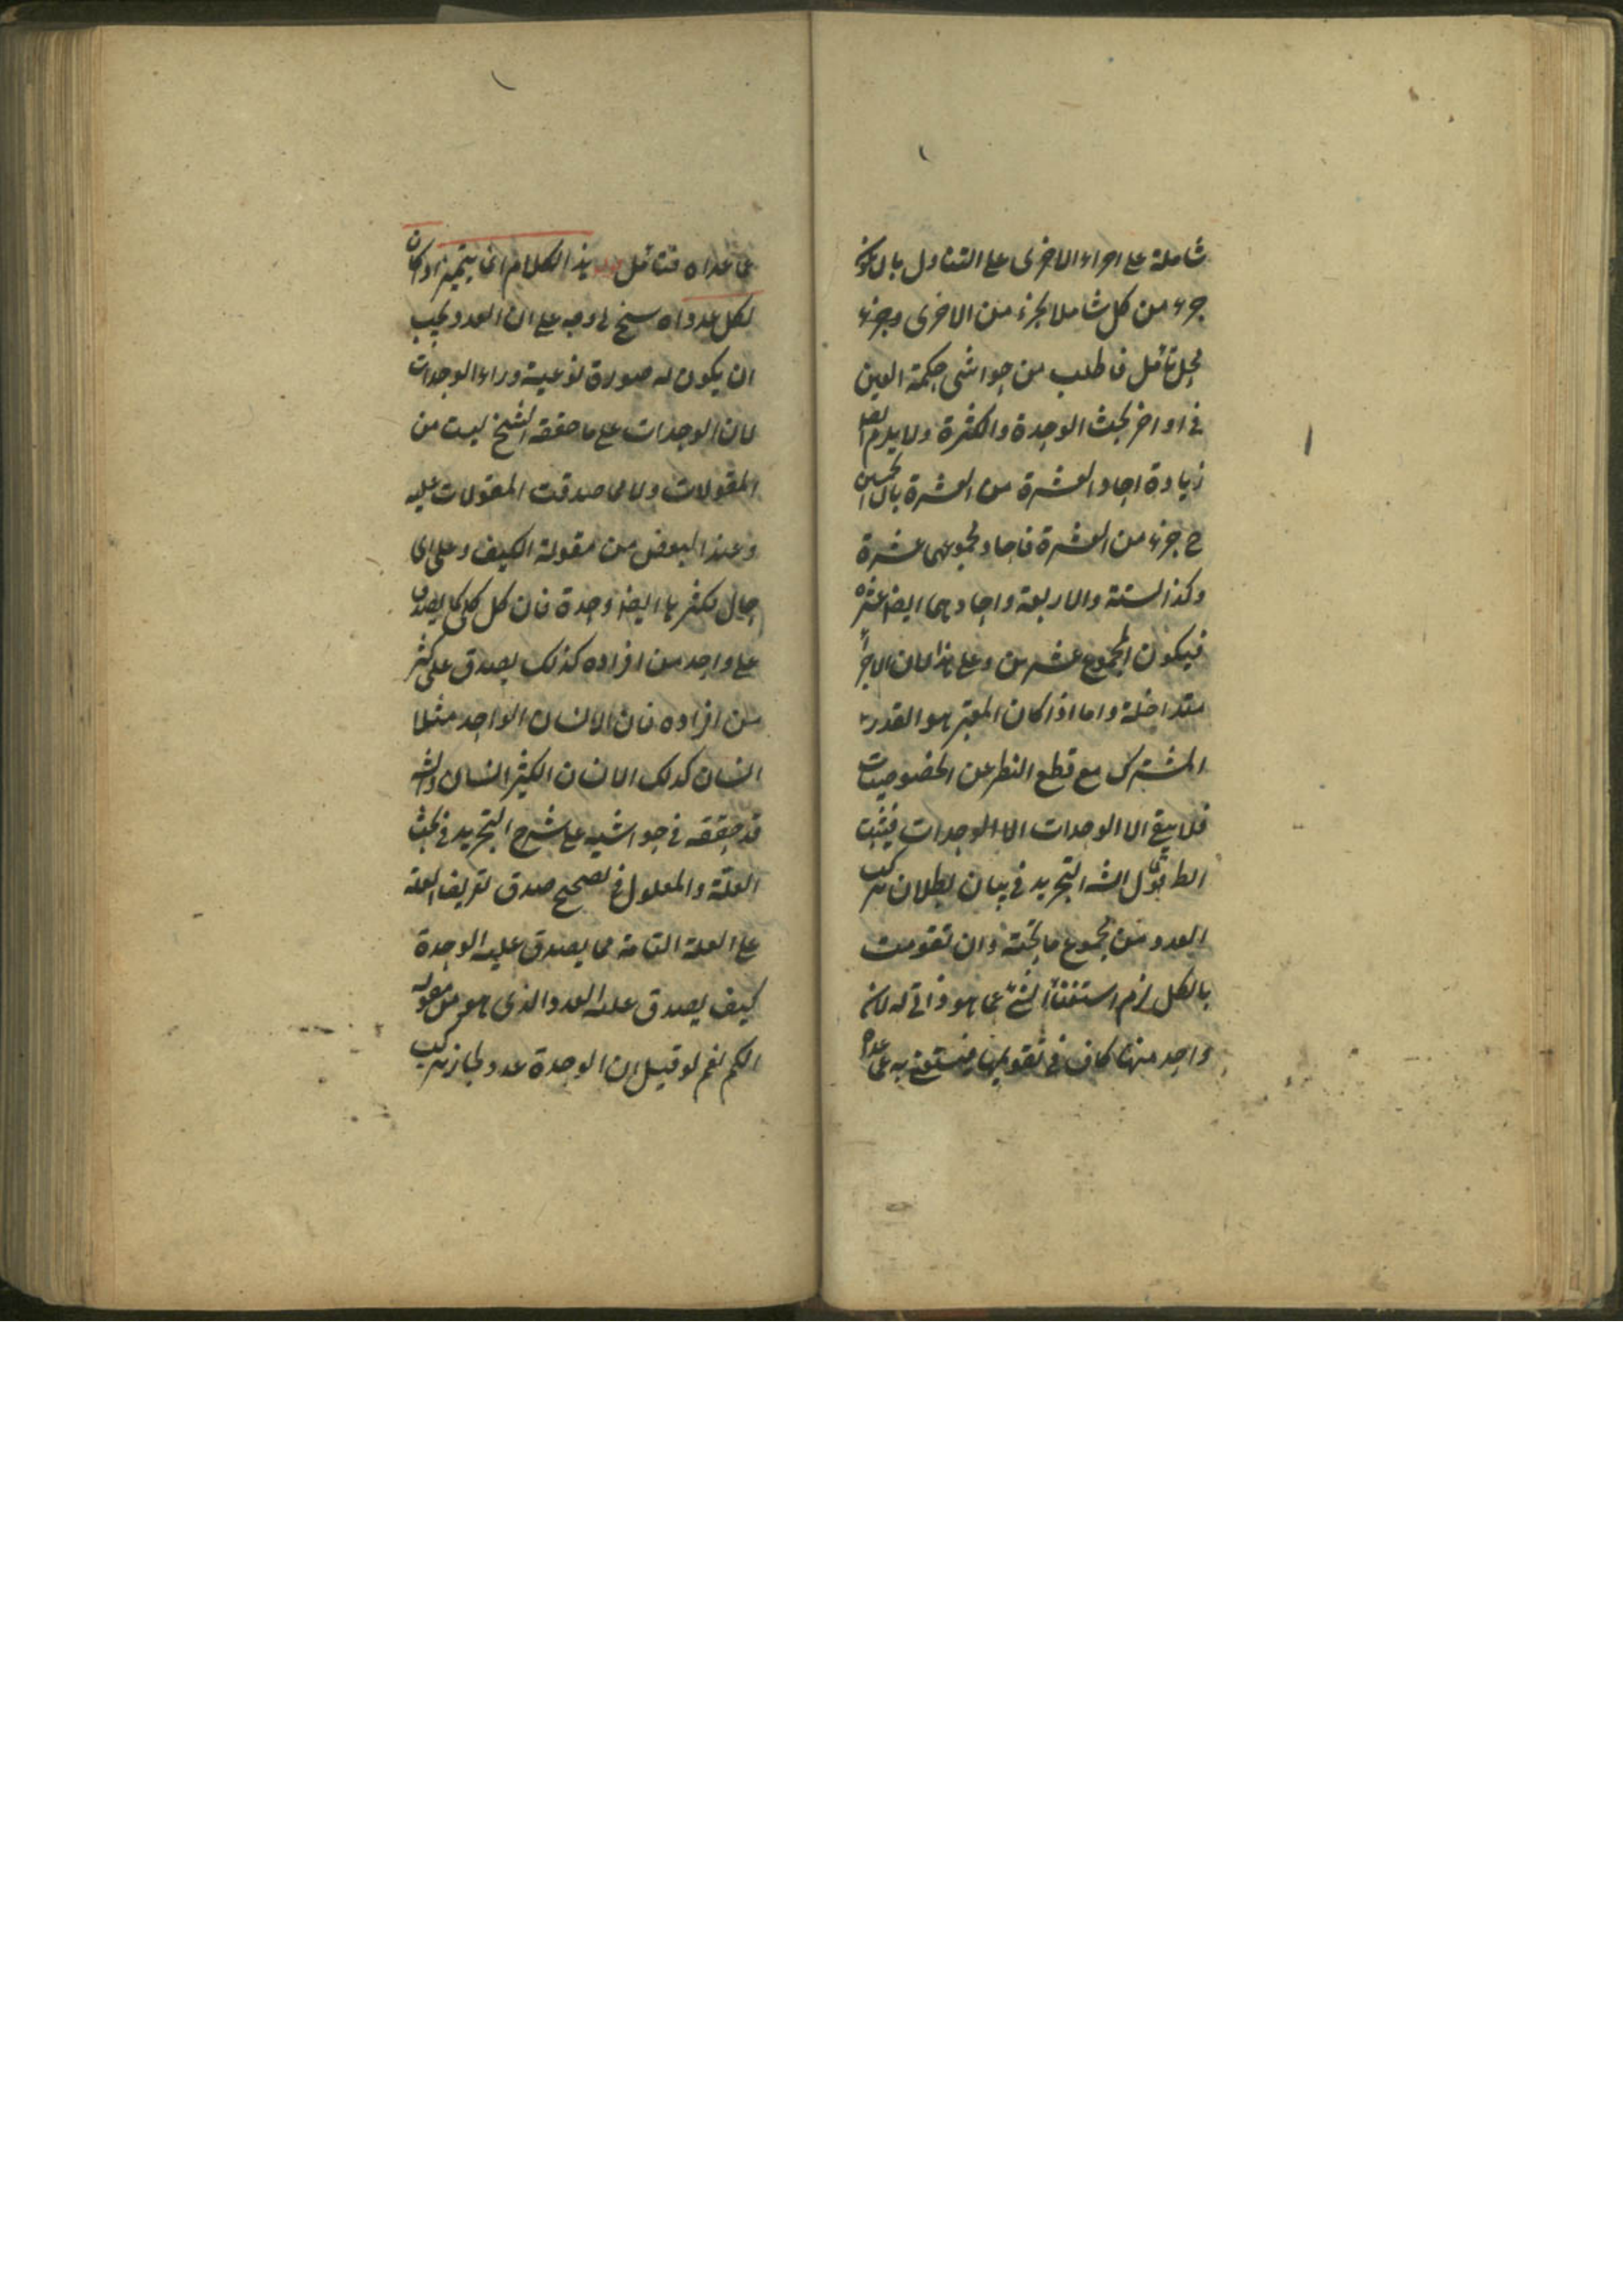 شاملة على اجزاء الاخرى على التناول بان يكون
جزء من كل شاملا لجزء من الاخرى وجزء
محل تأمل فاطلب من حواشى حكمة العين
فى اواخر بحث الوحدة والكثرة ولا يلزم ايضا
زيادة احاد العشرة من العشرة بان الخمسين
ح جزء من العشرة فاحاد مجموعهما عشرة
وكذا الستة والاربعة واحادهما ايضا عشرة
فيكون المجموع عشرين وعلى هذا لان الاجزاء
متداخلة واما اذا كان المعتبر هو القدر
المشترك مع قطع النظر عن الخصوصيات
فلا يبقى الا الوحدات الا الوحدات فيثبت
المط قول الش التجريد فى بيان بطلان تركب
العدد من مجموع ما تحته وان تقومت
بالكل لزم استغناء الشئ عما هو ذاتى له لان
واحد منها كاف فى تقويمها فيستغنى به عما عداه
عما عداه فتأمل هذا الكلام انما يتم اذا كان
لكل عدد اه سنخ لى وجه على ان العدد يجب
ان يكون له صورة نوعية وراء الوحدات
لان الوحدات على ما حققه الشيخ ليست من
المقولات ولا مما صدقت المقولات عليه
وعند البعض من مقولة الكيف وعلى اى
حال تكثرها ايضا وحدة فان كل كلى كما يصدق
على واحد من افراده كذلك يصدق على كثير
من افراده فان الانسان الواحد مثلا
انسان كذلك الانسان الكثير انسان والش
قد حققه فى حواشيه على شرح التجريد فى بحث
العلة والمعلول فى تصحيح صدق تعريف العلة
على العلة التامة مما يصدق عليه الوحدة
كيف يصدق عليه العدد الذى هو من مقولة
الكم نعم لو قيل ان الوحدة عدد لجاز تركب